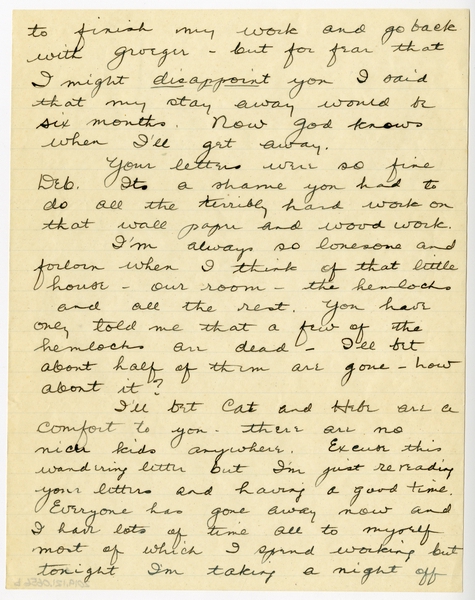 to finish my work and go back
with Groeger - but for fear that
I might disappoint you I said
that my stay away would be
six months. Now God knows
when I'll get away.
Your letters were so fine
Deb. Its a shame you had to
do all the terribly hard work on
that wall paper and wood work.
I'm always so lonesome and
forlorn when I think of that little
house - our room - the hemlocks
and all the rest. You have
only told me that a few of the
hemlocks are dead - I'll bet
about half of them are gone - how
about it?
I'll bet Cat and Hebe are a
comfort to you - there are no
nicer kids anywhere. Excuse this
wandering letter but I'm just rereading
your letters and having a good time.
Everyone has gone away now and
I have lots of time all to myself
most of which I spend working but
tonight I'm taking a night off